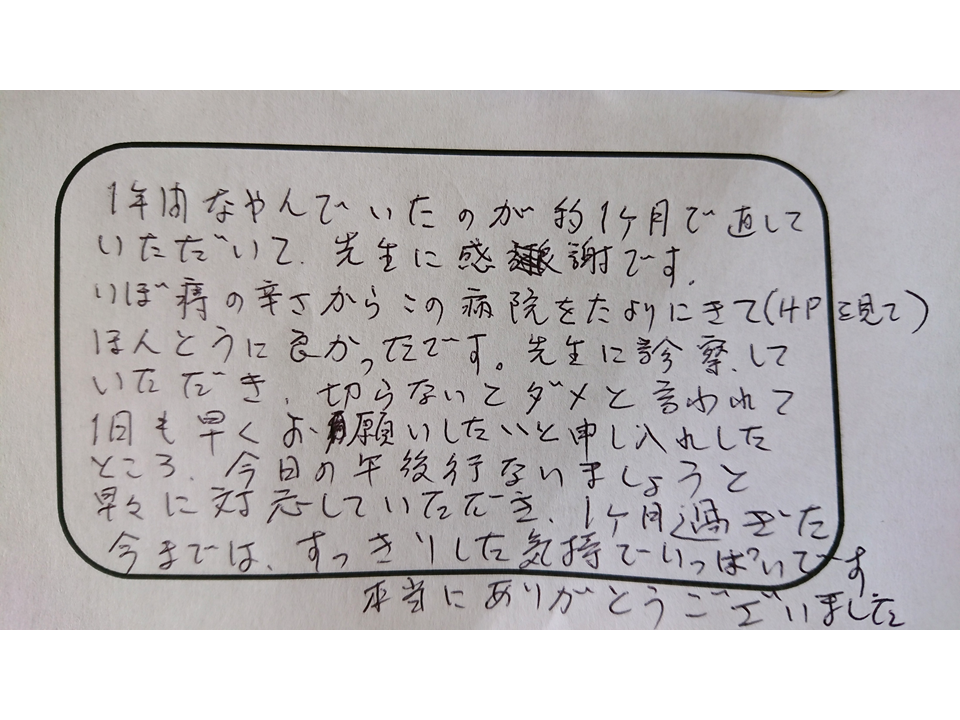 1年間なやんでいたのが約1ケ月で直して
いただいて、先生に感謝です。
いぼ痔の辛さからこの病院をたよりにきて(HPを見て)
ほんとうに良かったです。先生に診察して
いただき、切らないとダメと言われて
1日も早くお願いしたいと申し入れした
ところ、今日の午後行ないましょうと
早々に対応していただき、1ケ月過ぎた
今までは、すっきりした気持でいっぱいです
本当にありがとうございました